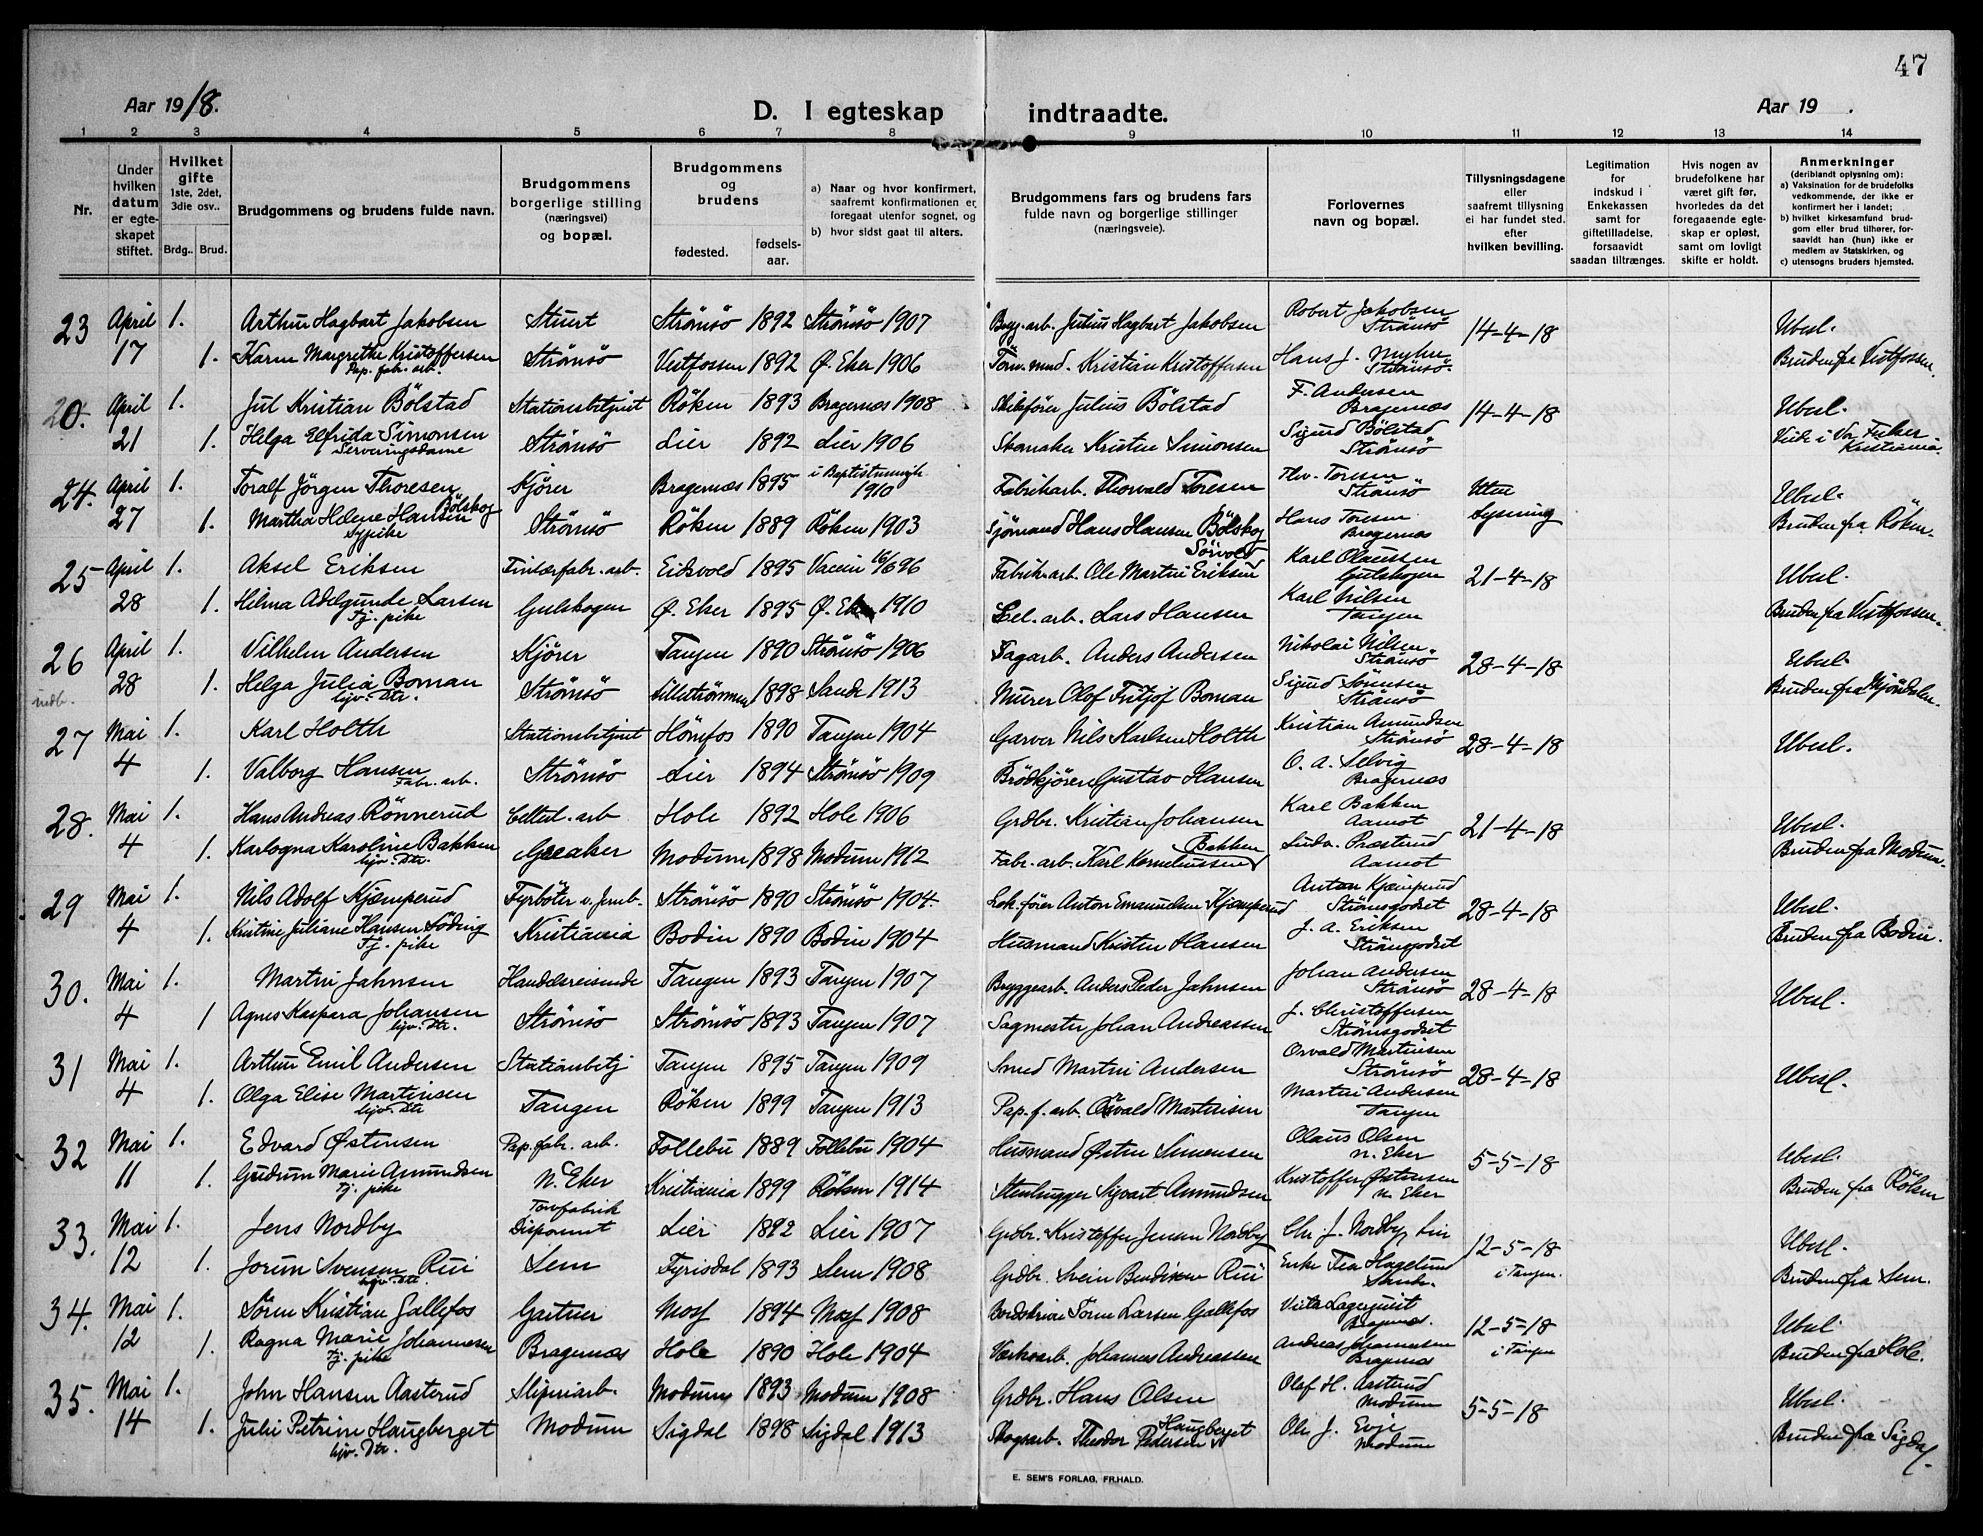 47
Aar 1918.
D. I egteskap indtraadte.
Aar 19 .
1 2 3 4 5 6 7 8 9 10 11 12 13 14
Nr.
Under hvilken datum er egteskapet stiftet.
Hvilket gifte 1ste, 2det, 3die osv..
Brdg.. Brud.
Brudgommens og brudens fulde navn.
Brudgommens borgerlige stilling (næringsvei) og bopæl.
Brudgommens og brudens
fødested. fødsels-aar.
a) Naar og hvor konfirmert, saafremt konfirmationen er foregaat utenfor sognet, og
b) hvor sidst gaat til alters.
Brudgommens fars og brudens fars fulde navn og borgerlige stillinger (næringsveie).
Forlovernes navn og bopæl.
Tillysningsdagene eller saafremt tillysning ei har fundet sted. efter hvilken bevilling.
Legitimation for indskud i Enkekassen samt for giftetilladelse, forsaavidt saadan tiltrænges.
Hvis nogen av brudefolkene har været gift før, hvorledes da det foregaaende egteskap er opløst, samt om lovligt skifte er holdt.
Anmerkninger (deriblandt oplysning om):
a) Vaksination for de brudefolks vedkommende, der ikke er konfirmert her i landet;
b) hvilket kirkesamfund brudgom eller brud tilhører, forsaavidt han (hun) ikke er medlem av Statskirken, og
c) utensogns bruders hjemsted.
23 April 1. Arthur Hagbart Jakobsen Stuert Strömsö 1892 Strömsö 1907 Brygg. arb. Julius Hagbart Jakobsen Robert Jakobsen Strömsö 14-4-18 Ubesl.
17 1. Karen Margrethe Kristoffersen Pap. fabr. arb. Strömsö Vestfossen 1892 Ø. Eker 1906 Kristian Kristoffersen Hans J. Myhre Strömsö. Bruden fra Vestfossen.
20. April 1. Jul Kristian Bölstad Stationsbetjent Röken 1893 Bragernæs 1908 Julius Bölstad F. Andersen Bragernæs 14-4-18 Ubesl.
21 1. Helga Elfrida Simonsen Serveringsdame Strömsö Lier 1892 Lier 1906 Skomaker Kristen Simonsen Sigurd Bölstad Strömsö Viede i Vor Frelser Kristiania.
24. April 1. Toralf Jörgen Thoresen Kjörer Bragernæs 1895 i Baptistmenigh. 1910 Fabrikarb. Thorvald Toresen Thv. Toresen Strömsö Uten Ubesl.
27 1. Martha Helene Hansen Bölskog Sypike Strömsö Röken 1889 Röken 1903 Sjömand Hans Hansen Bölskog Hans Toresen Bragernæs lysning Bruden fra Röken.
25 April 1. Aksel Eriksen Finlærfabr. arb. Eidsvold 1895 Vaccin 16/6 96 Fabrik. arb. Ole Martin Eriksen Sörvold Karl Olaussen Gulskogen 21-4-18 Ubesl.
28 1. Hilma Adelgunde Larsen Tj. pike Gulskogen Ø. Eker 1895 Ø. Eker 1910 Cel. arb. Lars Hansen Karl Nilsen Tangen Bruden fra Vestfossen.
26 April 1. Vilhelm Andersen Kjörer Tangen 1890 Strömsö 1906 Sagarb. Anders Andersen Nikolai Nilsen Strömsö 28-4-18 Ubesl.
indb. 28 1. Helga Julia Boman hjv. Dtr. Strömsö Lilleströmmen 1898 Sande 1913 Murer Olof Fritjof Boman Sigurd Sörensen Strömsö Bruden fra Mjöndalen.
27 Mai 1. Karl Holth Stationsbetjent Hönefos 1890 Tangen 1904 Garver Nils Karlsen Holth Kristian Amundsen Strömsö 28-4-18 Ubesl.
4 1. Valborg Hansen Fabr. arb. Strömsö Lier 1894 Strömsö 1909 Brödkjörer Gustav Hansen O. A. Selvig Bragernæs
28. Mai 1. Hans Andreas Rönnerud Cellul. arb Hole 1892 Hole 1906 Grdbr. Kristian Johansen Karl Bakken Aamot 21-4-18 Ubesl.
4 1. Karlogna Karoline Bakken hjv. Dtr. Geeaker Modum 1898 Modum 1912 Fabr. arb. Karl Korneliussen Bakken Ludv. Præstrud Aamot Bruden fra Modum.
29 Mai 1. Nils Adolf Kjæmperud Fyrböter v. Jernb. Strömsö 1890 Strömsö 1904 Lok. förer Anton Emanuelsen Kjæmperud Anton Kjæmperud Strömsgodset 28-4-18 Ubesl.
4 1. Kristine Juliane Hansen Söding Tj. pike Kristiania Bodin 1890 Bodin 1904 Husmand Kristen Hansen J. A. Eriksen Strömsgodset Bruden fra Bodin.
30. Mai 1. Martin Jahnsen Handelsreisende Tangen 1893 Tangen 1907 Bryggearb. Anders Peder Jahnsen Johan Andersen Strömsö 28-4-18 Ubesl.
4 1 Agnes Kaspara Johansen hjv. Dtr. Strömsö Strömsö 1893 Tangen 1907 Sagmester Johan Andreassen J. Christoffersen Strömsgodset
31 Mai 1. Arthur Emil Andersen Stationsbetj Tangen 1895 Tangen 1909 Smed Martin Andersen Osvald Martinsen Strömsö 28-4-18 Ubesl.
4 1. Olga Elise Martinsen hjv. Dtr Tangen Röken 1899 Tangen 1913 Pap. f. arb. Osvald Martinsen Martin Andersen Tangen
32 Mai 1. Edvard Østensen Pap. fabr. arb. Follebu 1889 Follebu 1904 Husmand Østen Simensen Olaus Olsen N. Eker 5-5-18 Ubesl.
11 1. Gudrun Marie Amundsen Tj. pike N. Eker Kristiania 1899 Röken 1914 Stenhugger Sigvart Amundsen Kristoffer Østensen N. Eker Bruden fra Röken
33. Mai 1. Jens Nordby Tönfabrik Disponent Lier 1892 Lier 1907 Grdbr. Kristoffer Jensen Nordby Chr. J. Nordby, Lier 12-5-18 Ubesl.
12 1. Jorun Svensen Rui hjv. Dtr. Sem Fyrisdal 1893 Sem 1908 Grdbr. Svein Bendiksen Rui Enke Tea Hagelund i Tangen. Bruden fra Sem.
34. Mai 1. Sören Kristian Gallefos Gartner Moss 1894 Moss 1908 Sören Larsen Gallefos Lagerquist Bragernæs. 12-5-18 Ubesl.
12 1. Ragna Marie Johannesen Tj. pike Bragernæs Hole 1890 Hole 1904 Værksarb. Johannes Andreassen Andreas Johannesen Bragernæs i Tangen Bruden fra Hole.
35. Mai 1. John Hansen Aasterud Sliperiarb. Modum 1893 Modum 1908 Grdbr. Hans Olsen Olaf H. Aasterud Modum 5-5-18 Ubesl.
14 1. Julie Petrine Haugberget hjv. Dtr. Modum Sigdal 1898 Sigdal 1913 Skogsarb. Theodor Pedersen Haugberget Ole J. Evje Modum Bruden fra Sigdal.
E. SEM'S FORLAG, FR.HALD.